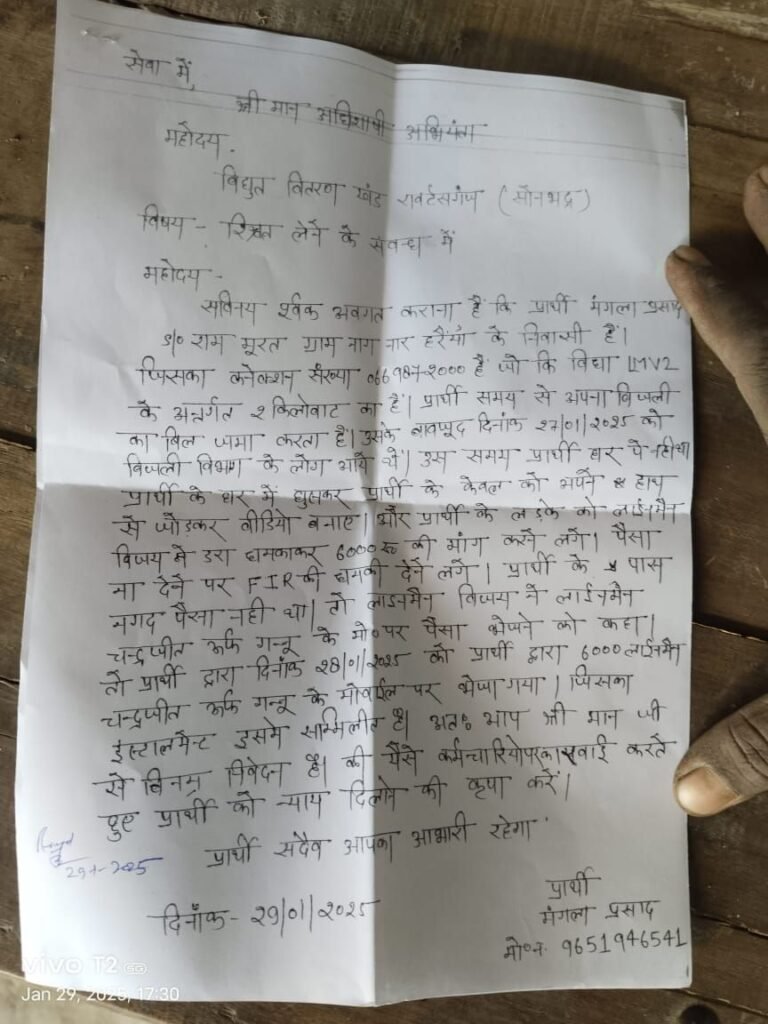 सेवा में,
श्री मान अधिशाषी अभियंता
महोदय.
विद्युत वितरण खंड रावर्टसगंज (सोनभद्र)
विषय - रिश्वत लेने के संवन्ध में
महोदय -
सविनय र्श्वक अवगत कराना है कि प्रार्थी मंगला प्रसाद
S/o राम मूरत ग्राम नाग नार हरैया के निवासी है।
जिसका कनेक्शन संख्या है जो कि विधा LMV2
के अन्तर्गत 2 किलोवाट का है। प्रार्थी समय से अपना विजली
का बिल जमा करता है। उसके वावजूद दिनांक 27/01/2025 को
विजली विभाग के लोग आये थे। उस समय प्रार्थी घर पे नही था
प्रार्थी के घर में घुसकर प्रार्थी के केवल को अपने हाथ
से जोड़कर वीडियो बनाए। और प्रार्थी के लड़के को लाईनमैन
विजय ने डरा धमकाकर 6000 रू की मांग करने लगे। पैसा
ना देने पर FIR की धमकी देने लगे। प्रार्थी के पास
नगद पैसा नही था। तो लाईनमैन विजय ने लाईनमैन
चन्द्रजीत उर्फ गन्नू के मो० पर पैसा भेजने को कहा।
तो प्रार्थी द्वारा दिनांक 28/01/2025 को प्रार्थी द्वारा 6000 लाईनमैन
चन्द्रजीत उर्फ गन्नू के मोवाईल पर भेजा गया। जिसका
इंस्टालमैन्ट इसमे सम्मिलीत है। अतः आप श्री मान जी
से विनम्र निवेदन है। की यैसे कर्मचारियो पर कारवाई करते
हुए प्रार्थी को न्याय दिलाने की कृपा करें।
प्रार्थी सदैव आपका आभारी रहेगा
दिनाँक - 29/01/2025
प्रार्थी
मंगला प्रसाद
मो०न० 9651946541
vivo T2 5G
Jan 29, 2025, 17:30